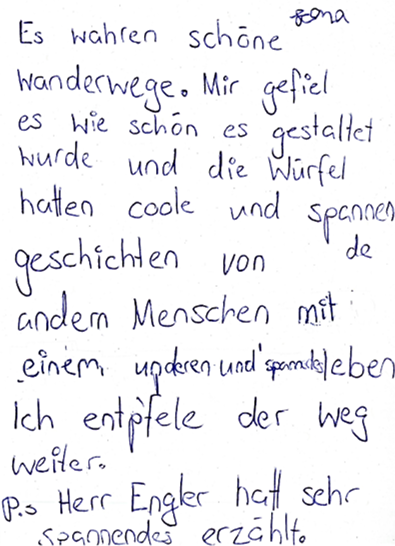 Es wahren schöne
wanderwege. Mir gefiel
es wie schön es gestaltet
wurde und die Würfel
hatten coole und spannen
de
geschichten von
andern Menschen mit
einem und leben
Ich entpfele der weg
weiter.
P.s Herr Engler hatt sehr
spannendes erzählt.